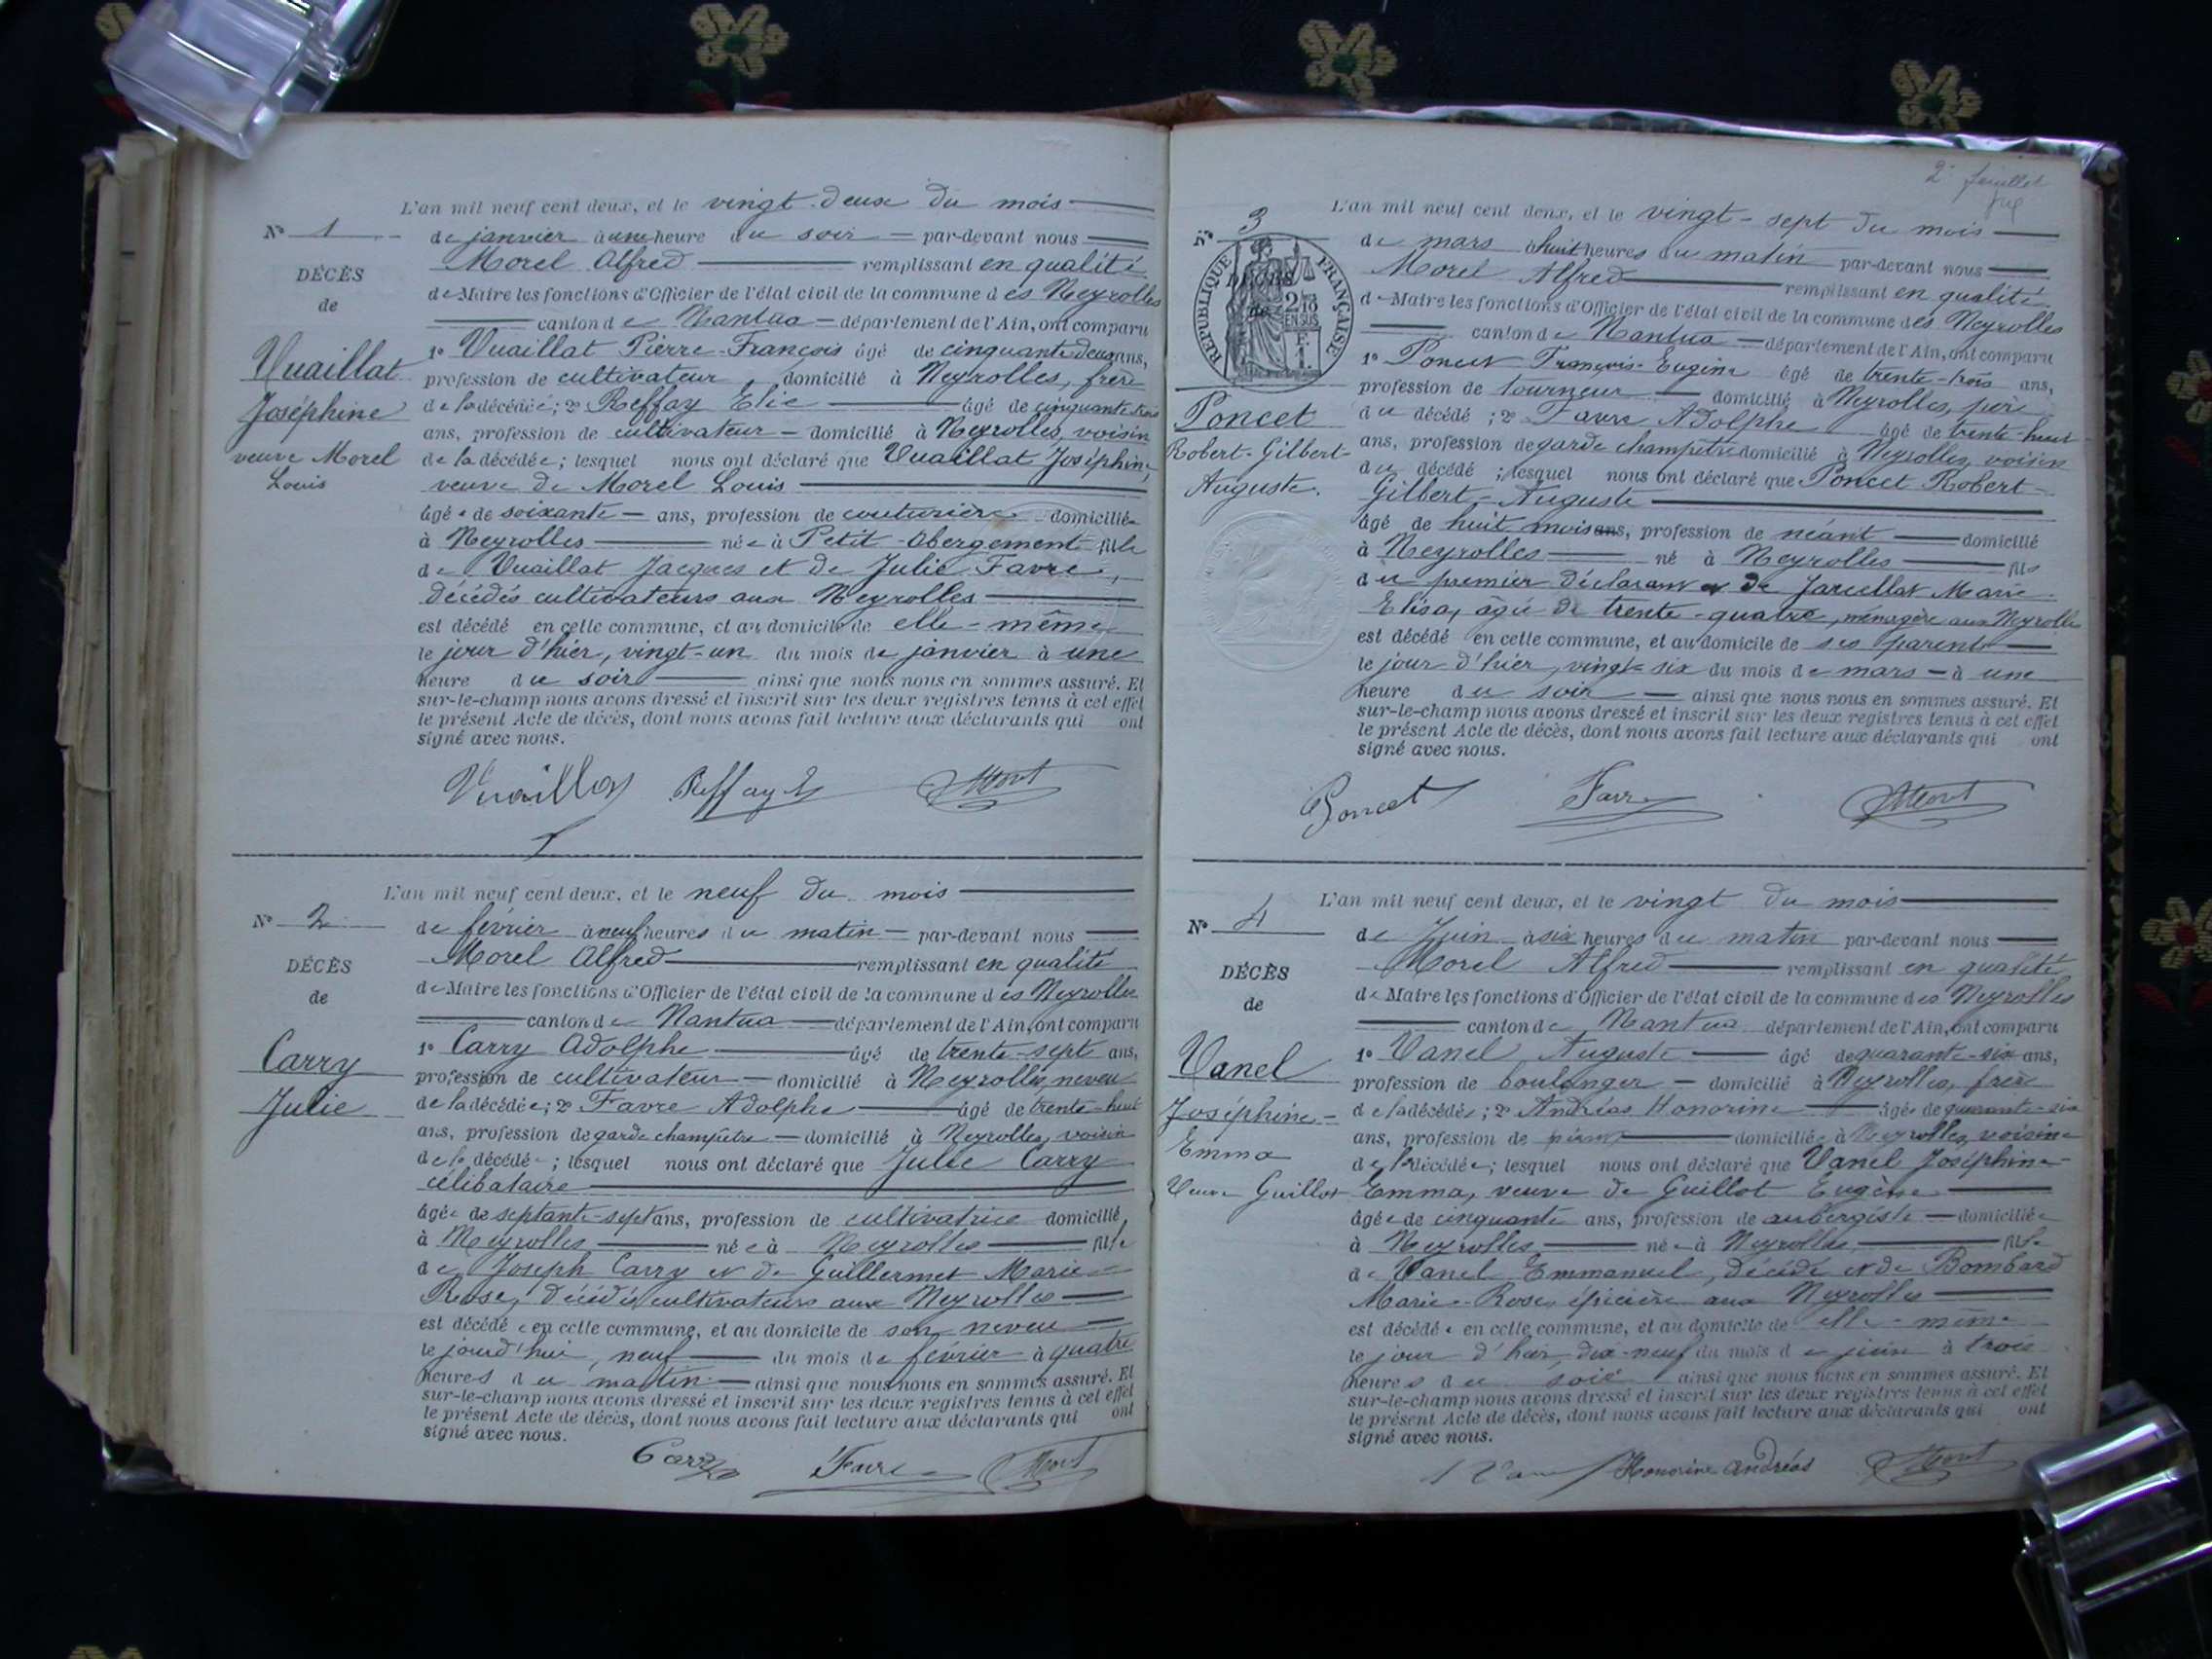 L'an mil neuf cent deux, et le vingt-deux du mois
N° 1
de janvier à une heure du soir par-devant nous
Morel Alfred remplissant en qualité
DÉCÈS
de Maire les fonctions d'Officier de l'état civil de la commune des Neyrolles
de
canton de Nantua département de l'Ain, ont comparu
1° Vuaillat Pierre-François âgé de cinquante deux ans,
Vuaillat
profession de cultivateur, domicilié à Neyrolles, frère
Joséphine
de la décédée; 2° Reffay Elie âgé de cinquante-trois
ans, profession de cultivateur domicilié à Neyrolles, voisin
veuve Morel
de la décédée; lesquel nous ont déclaré que Vuaillat Joséphine,
Louis
veuve de Morel Louis
âgée de soixante ans, profession de couturière domiciliée
à Neyrolles née à Petit-Abergement fille
de Vuaillat Jacques et de Julie Favre,
décédés cultivateurs aux Neyrolles
est décédé en cette commune, et au domicile de elle-même
le jour d'hier, vingt-un du mois de janvier à une
heure du soir ainsi que nous nous en sommes assuré. Et
sur-le-champ nous avons dressé et inscrit sur les deux registres tenus à cet effet
le présent Acte de décès, dont nous avons fait lecture aux déclarants qui ont
signé avec nous.
Vuaillat Reffay E
L'an mil neuf cent deux, et le neuf du mois
N° 2
de février à neuf heures du matin par-devant nous
Morel Alfred remplissant en qualité
DÉCÈS
de Maire les fonctions d'Officier de l'état civil de la commune des Neyrolles
de
canton de Nantua département de l'Ain, ont comparu
1° Carry Adolphe âgé de trente-sept ans,
Carry
profession de cultivateur domicilié à Neyrolles, neveu
Julie
de la décédée; 2° Favre Adolphe âgé de trente-huit
ans, profession de garde champêtre domicilié à Neyrolles, voisin
de la décédée; lesquel nous ont déclaré que Julie Carry
célibataire
âgée de septante-sept ans, profession de cultivatrice domicilié
à Neyrolles née à Neyrolles fille
de Joseph Carry et de Guillermet Marie
Rose, décédés cultivateurs aux Neyrolles
est décédée en cette commune, et au domicile de son neveu
le jourd'hui, neuf du mois de février à quatre
heures du matin ainsi que nous nous en sommes assuré. Et
sur-le-champ nous avons dressé et inscrit sur les deux registres tenus à cet effet
le présent Acte de décès, dont nous avons fait lecture aux déclarants qui ont
signé avec nous.
Carry Favre
2e feuillet
L'an mil neuf cent deux, et le vingt-sept du mois
N° 3
de mars à huit heures du matin par-devant nous
Morel Alfred remplissant en qualité
RÉPUBLIQUE FRANÇAISE
2/10 EN SUS
de Maire les fonctions d'Officier de l'état civil de la commune des Neyrolles
canton de Nantua département de l'Ain, ont comparu
1° Poncet François-Eugène âgé de trente-trois ans,
profession de tourneur domicilié à Neyrolles, père
Poncet
du décédé; 2° Favre Adolphe âgé de trente-huit
Robert-Gilbert-
ans, profession de garde champêtre domicilié à Neyrolles, voisin
du décédé; lesquel nous ont déclaré que Poncet Robert-
Auguste.
Gilbert-Auguste
âgé de huit mois ans, profession de néant domicilié
à Neyrolles né à Neyrolles fils
du premier déclarant et de Jarcellat Marie-
Elisa, âgée de trente-quatre, ménagère aux Neyrolles
est décédé en cette commune, et au domicile de ses parents
le jour d'hier, vingt-six du mois de mars à une
heure du soir ainsi que nous nous en sommes assuré. Et
sur-le-champ nous avons dressé et inscrit sur les deux registres tenus à cet effet
le présent Acte de décès, dont nous avons fait lecture aux déclarants qui ont
signé avec nous.
Poncet Favre
L'an mil neuf cent deux, et le vingt du mois
N° 4
de Juin à six heures du matin par-devant nous
Morel Alfred remplissant en qualité
DÉCÈS
de Maire les fonctions d'Officier de l'état civil de la commune des Neyrolles
de
canton de Nantua département de l'Ain, ont comparu
1° Vanel Auguste âgé de quarante-six ans,
Vanel
profession de boulanger domicilié à Neyrolles, frère
Joséphine-
de la décédée; 2° Andréas Honorine âgée de quarante-six
ans, profession de domiciliée à Neyrolles, voisine
Emma
de la décédée; lesquel nous ont déclaré que Vanel Joséphine-
Veuve Guillot
Emma, veuve de Guillot Eugène
âgée de cinquante ans, profession de aubergiste domiciliée
à Neyrolles née à Neyrolles fille
de Vanel Emmanuel, décédé et de Bombard
Marie-Rose, épicière aux Neyrolles
est décédée en cette commune, et au domicile de elle-même
le jour d'hier, dix-neuf du mois de juin à trois
heures du soir ainsi que nous nous en sommes assuré. Et
sur-le-champ nous avons dressé et inscrit sur les deux registres tenus à cet effet
le présent Acte de décès, dont nous avons fait lecture aux déclarants qui ont
signé avec nous.
Honorine Andréas